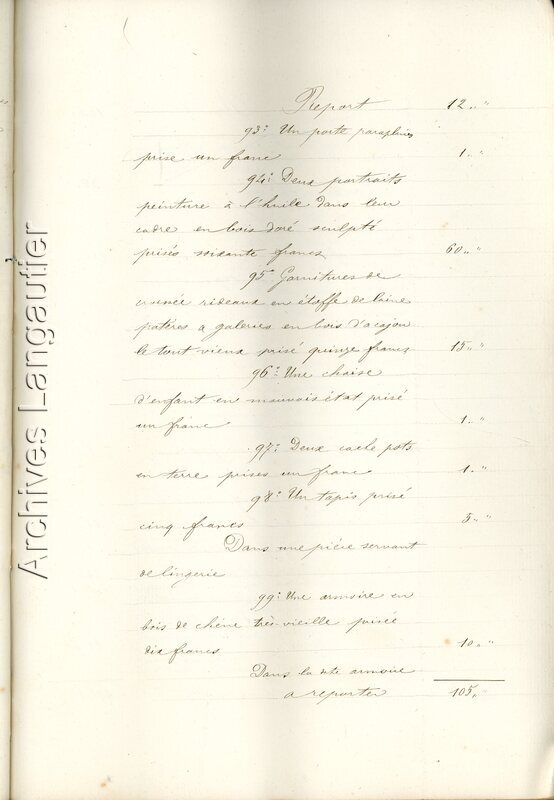 Report 12 " "
93° Un porte parapluies
prisé un franc 1 " "
94° Deux portraits
peinture à l'huile dans leur
cadre en bois doré sculpté
prisés soixante francs 60 " "
95° Garnitures de
croisée rideaux en étoffe de laine
patères & galeries en bois d'acajou
le tout vieux prisé quinze francs 15 " "
96° Une chaise
d'enfant en mauvais état prisé
un franc 1 " "
97° Deux cache pots
en terre prisés un franc 1 " "
98° Un tapis prisé
cinq francs 5 " "
Dans une pièce servant
de lingerie
99° Une armoire en
bois de chêne très vieille prisée
dix francs 10 " "
Dans la dte armoire
a reporter 105 "
Archives Langautier